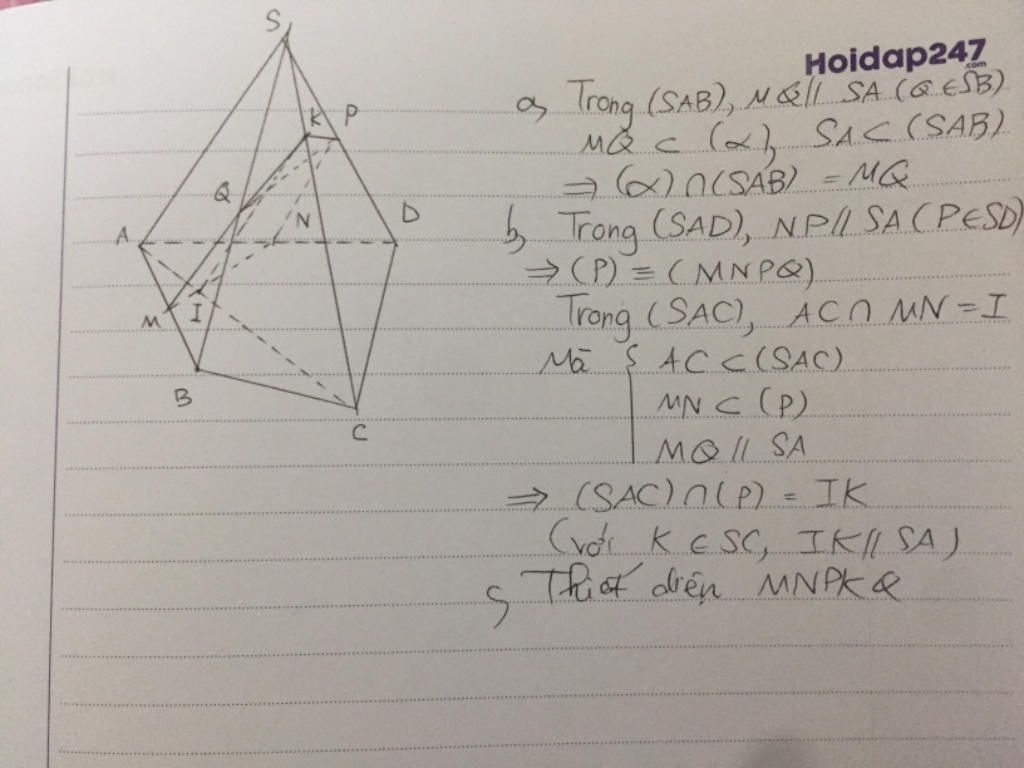 S
K P
Q
N
D
A
M I
B
C
Hoidap247
.com
a, Trong (SAB), MQ // SA (Q ∈ SB)
MQ ⊂ (α), SA ⊂ (SAB)
⇒ (α) ∩ (SAB) = MQ
b, Trong (SAD), NP // SA (P ∈ SD)
⇒ (P) ≡ (MNPQ)
Trong (SAC), AC ∩ MN = I
Mà { AC ⊂ (SAC)
MN ⊂ (P)
MQ // SA
⇒ (SAC) ∩ (P) = IK
(với K ∈ SC, IK // SA)
c, Thiết diện MNPKQ